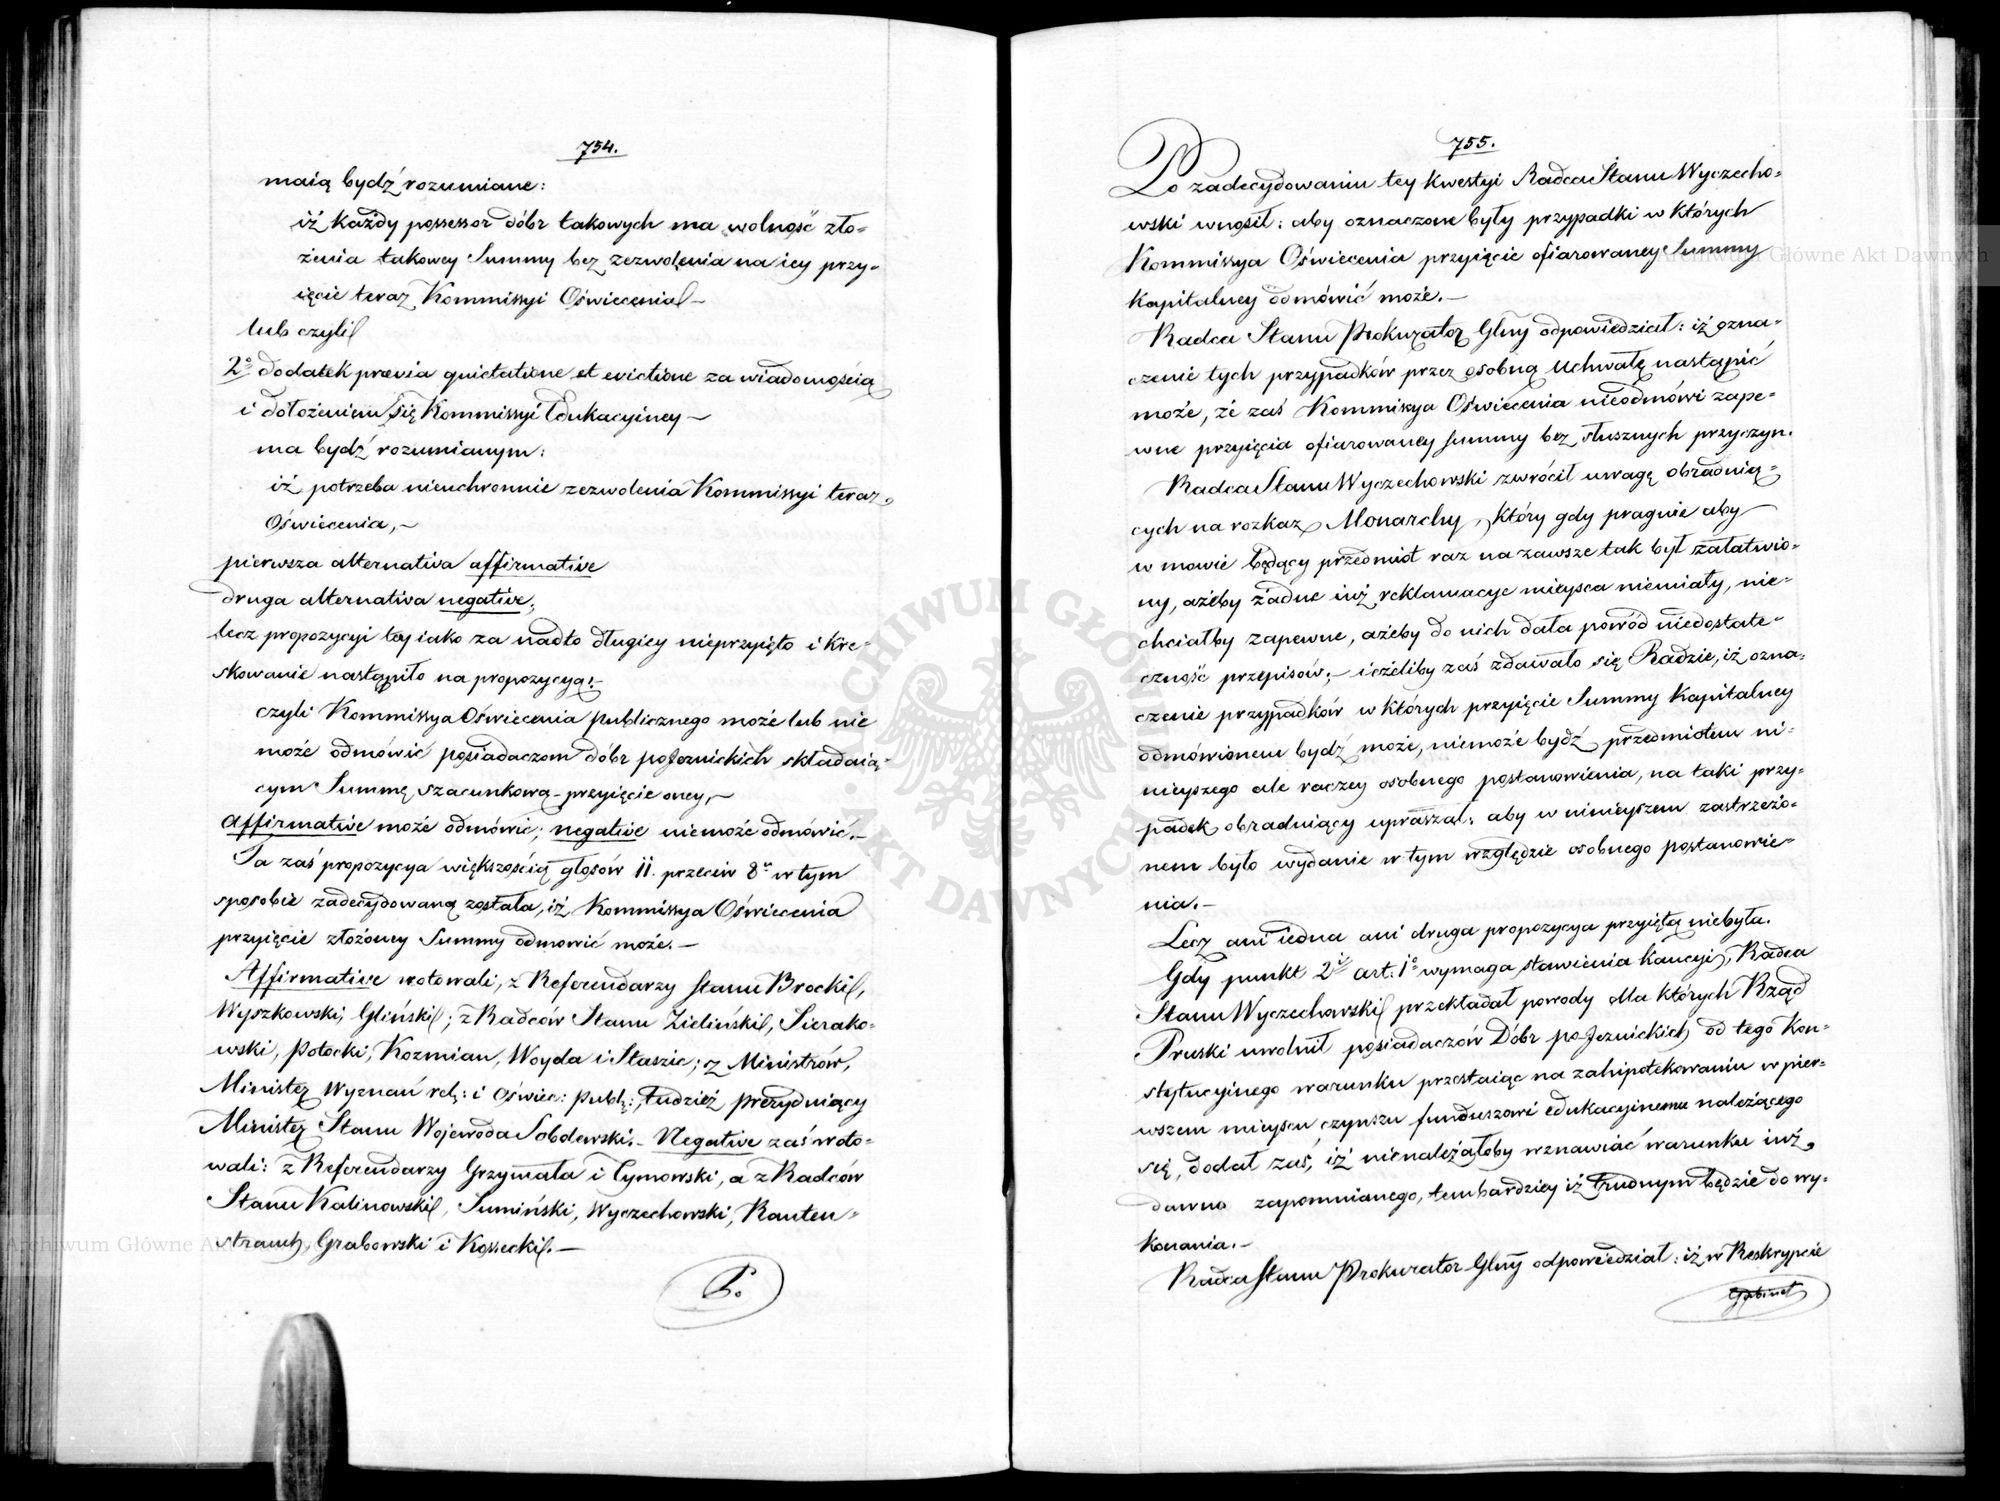 754.
maią bydź rozumiane:
iż każdy possessor dóbr takowych ma wolność zło=
żenia takowey Summy bez zezwolenia na iey przy=
ięcie teraz Kommissyi Oświecenia –
lub czyli
2º dodatek prævia quietatione et evictione za wiadomością
i dołożeniem się Kommissyi Edukacyiney –
ma bydź rozumianym:
iż potrzeba nieuchronnie zezwolenia Kommissyi teraz
Oświecenia, –
pierwsza alternativa affirmative
druga alternativa negative;
lecz propozycyi tey iako za nadto długiey nieprzyięto i kre=
skowanie nastąpiło na propozycyą: –
czyli Kommissya Oświecenia publicznego może lub nie
może odmówić posiadaczom dóbr poJeznickich składaią=
cym Summę szacunkową – przyięcie oney, –
Affirmative może odmówić; negative niemoże odmówić. –
Ta zaś propozycya większością głosów 11. przeciw 8u w tym
sposobie zadecydowaną została, iż Kommissya Oświecenia
przyięcie złożoney Summy odmowić może. –
Affirmative wotowali, z Referendarzy Stanu Brocki,
Wyszkowski, Gliński; z Radców Stanu Zieliński, Sierako=
wski, Potocki, Kozmian, Woyda i Staszic; z Ministrów,
Ministę Wyznań relg: i Oświec: publ:, tudzież prezyduiący
Ministę Stanu Wojewoda Sobolewski. – Negative zaś woto=
wali: z Referendarzy Grzymała i Tymowski, a z Radców
Stanu Kalinowski, Sumiński, Wyczechowski, Rauten=
strauch, Grabowski i Kossecki. –
Po
755.
Po zadecydowaniu tey kwestyi Radca Stanu Wyczecho=
wski wnosił: aby oznaczone były przypadki w których
Kommissya Oświecenia przyięcie ofiarowaney Summy
Kapitalney odmówić może. –
Radca Stanu Prokurator Glny odpowiedział: iż ozna=
czenie tych przypadków przez osobną Uchwałę nastąpić
może, że zaś Kommissya Oświecenia nieodmówi zape=
wne przyięcia ofiarowaney summy bez słusznych przyczyn.
Radca Stanu Wyczechowski zwrócił uwagę obraduią=
cych na rozkaz Monarchy, który gdy pragnie aby
w mowie będący przedmiot raz na zawsze tak był załatwio=
ny, ażeby żadne iuż reklamacye mieysca niemiały, nie=
chciałby zapewne, ażeby do nich dała powód niedostate=
czność przepisów; – ieżeliby zaś zdawało się Radzie, iż ozna=
czenie przypadków w których przyięcie Summy Kapitalney
odmówionem bydź może, niemoże bydź przedmiotem ni=
nieyszego ale raczey osobnego postanowienia, na taki przy=
padek obraduiący upraszał: aby w ninieyszem zastrzeżo=
nem było wydanie w tym względzie osobnego postanowie=
nia. –
Lecz ani iedna ani druga propozycya przyiętą niebyła.
Gdy punkt 2i art. 1º wymaga stawienia kaucyi, Radca
Stanu Wyczechowski przekładał powody dla których Rząd
Pruski uwolnił posiadaczów Dóbr poJeznickich od tego kon=
stytucyinego warunku przestaiąc na zahipotekowaniu w pier=
wszem mieyscu czynszu funduszowi edukacyinemu należącego
się, dodał zaś, iż nienależałoby wznawiać warunku iuż
dawno zapomnianego, tembardziey iż trudnym będzie do wy=
konania. –
Radca Stanu Prokurator Glny odpowiedział: iż w Reskrypcie
Gabinet
Archiwum Główne Akt Dawnych
Archiwum Główne Akt Dawnych
ARCHIWUM GŁÓWNE AKT DAWNYCH